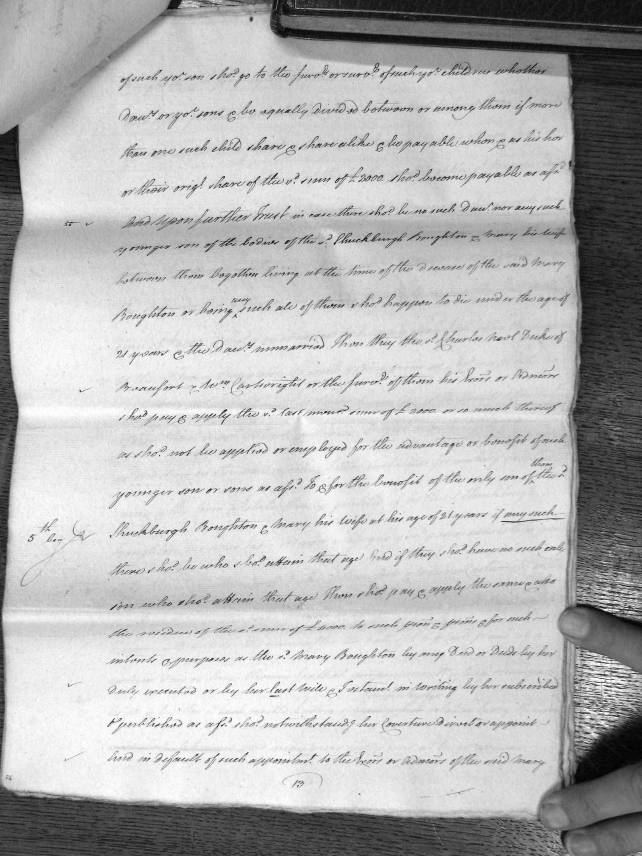 of such yor. son shod. go to the survr. or survrs. of such yor. children whether
Dau'rs or yor. sons & be equally divided between or among them if more
than one such child share & share alike & be payable when & as his her
or their origl. share of the sd. sum of £2000. shod. become payable as afsd.
And Upon further Trust in case there shod. be no such Daur. nor any such
younger son of the bodies of the sd. Shuckburgh Boughton & Mary his wife
between them begotten living at the time of the decease of the said Mary
Boughton or being any such all of them shod. happen to die under the age of
21 years & the Daurs. unmarried Then they the sd. Charles Noel Duke of
Beaufort & Wm. Cartwright or the survr. of them his Exors or Admors
shod. pay & apply the sd. last mentd. sum of £2000 or so much thereof
as shod. not be applied or employed for the advantage or benefit of such
younger son or sons as afsd. To & for the benefit of the only son of them the sd.
5th. Shuckburgh Boughton & Mary his Wife at his age of 21 years if any such
there shod. be who shod. attain that age And if they shod. have no such only
son who shod. attain that age Then shod. pay & apply the same & also
the residue of the sd. sum of £4000. to such person & persons & for such
intents & purposes as the sd. Mary Boughton by any Deed or Deeds by her
duly executed or by her last Will & Testamt. in writing by her subscribed
& published as afsd. shod. notwithstandg. her Coverture direct or appoint
And in default of such appointmt. to the Exors or Admors of the said Mary
13